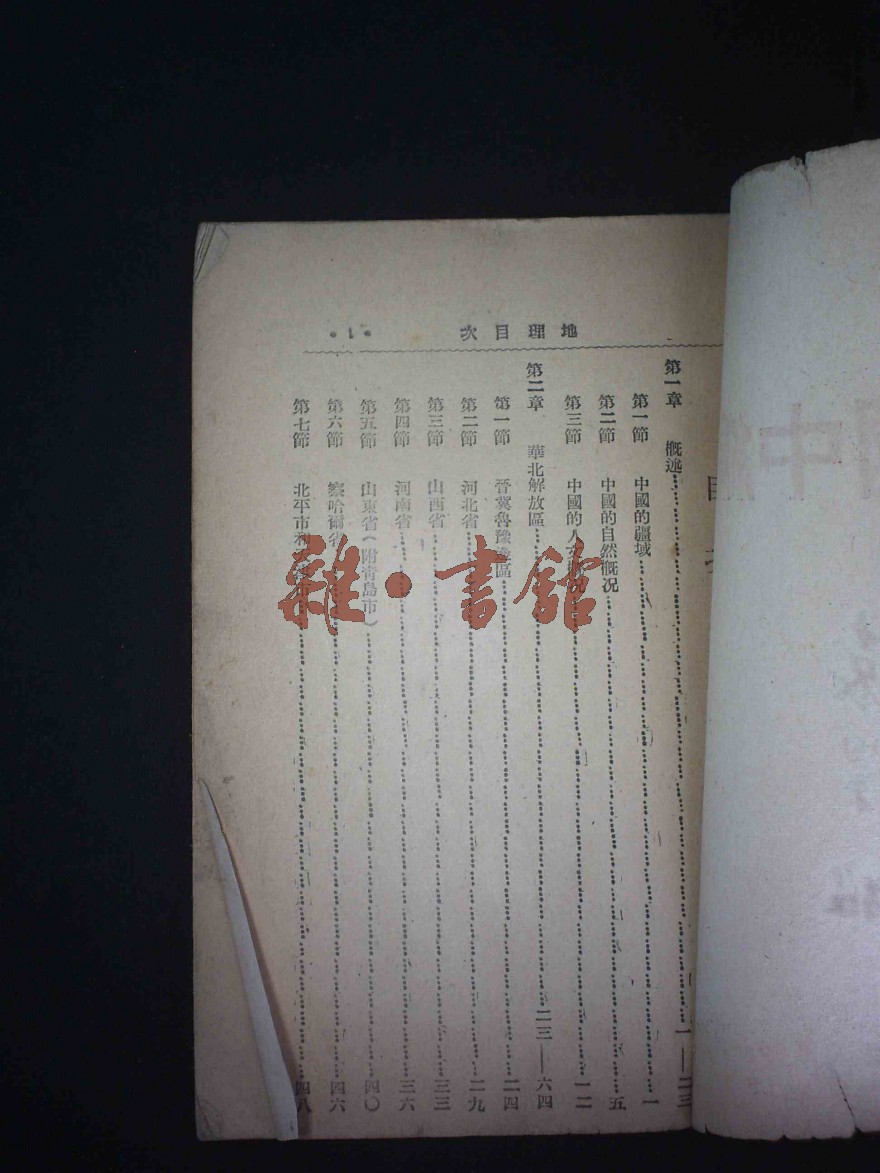 地理目次 •1•
目次
第一章 概述……一——二三
第一節 中國的疆域……一
第二節 中國的自然概况……五
第三節 中國的人文概况……一二
第二章 華北解放區……二三——六四
第一節 晋冀魯豫邊區……二四
第二節 河北省……二九
第三節 山西省……三三
第四節 河南省……三六
第五節 山東省(附青島市)……四〇
第六節 察哈爾省……四六
第七節 北平市和……四八
雜·書館